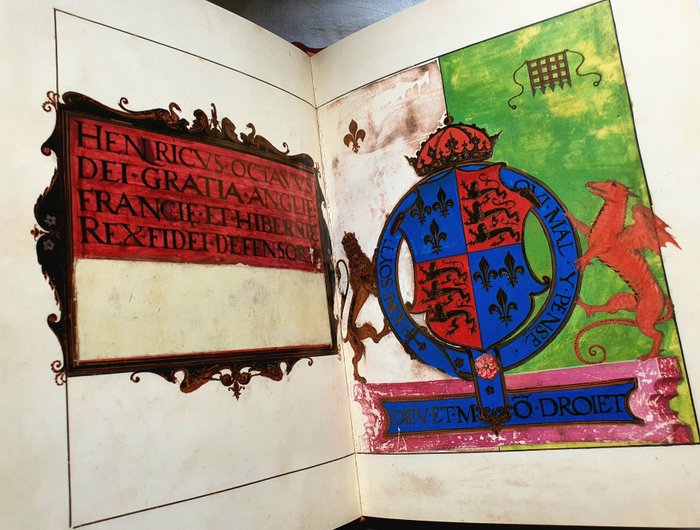 HENRICVS·OCTAVVS
DEI·GRATIA·ANGLIE
FRANCIE·ET·HIBERNIE
REX·FIDEI·DEFENSOR
SOYT·QVI·MAL·Y·PENSE·
DEV·ET·MŌ·DROIET